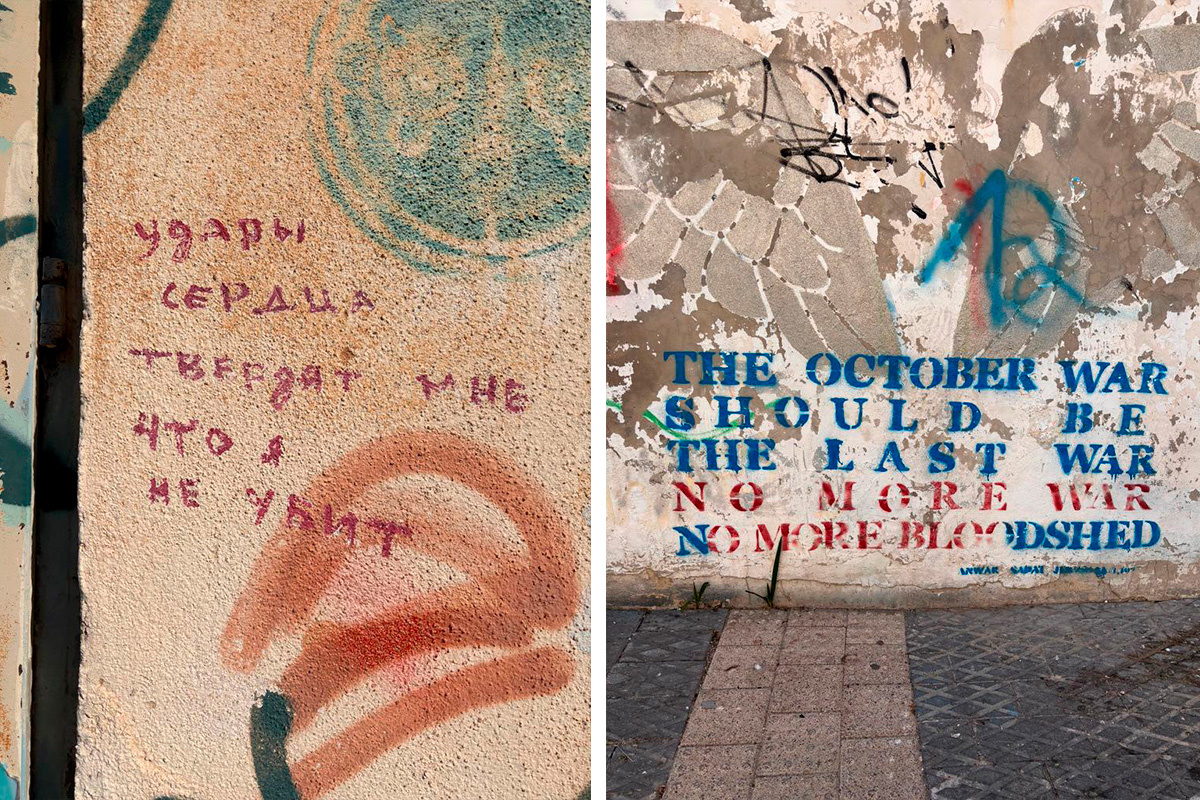 удары
СЕРДЦА
ТВЕРдЯТ МНЕ
ЧТО Я
НЕ УБИТ
THE OCTOBER WAR
SHOULD BE
THE LAST WAR
NO MORE WAR
NO MORE BLOODSHED
ANWAR SADAT